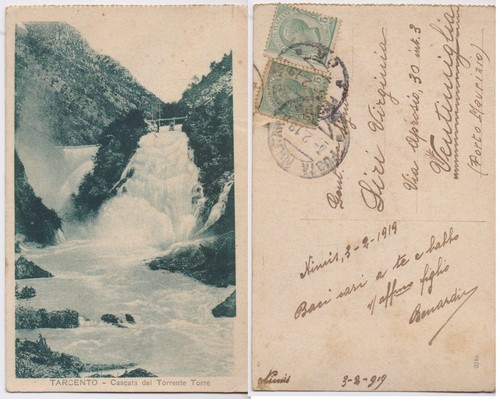 TARCENTO - Cascata del Torrente Torre
Siri Virginia
Via Aprosio, 30 int. 3
Ventimiglia
(Porto Maurizio)
Nimis, 3-2-1919
Baci cari a te e babbo
figlio
Nimis 3-2-919